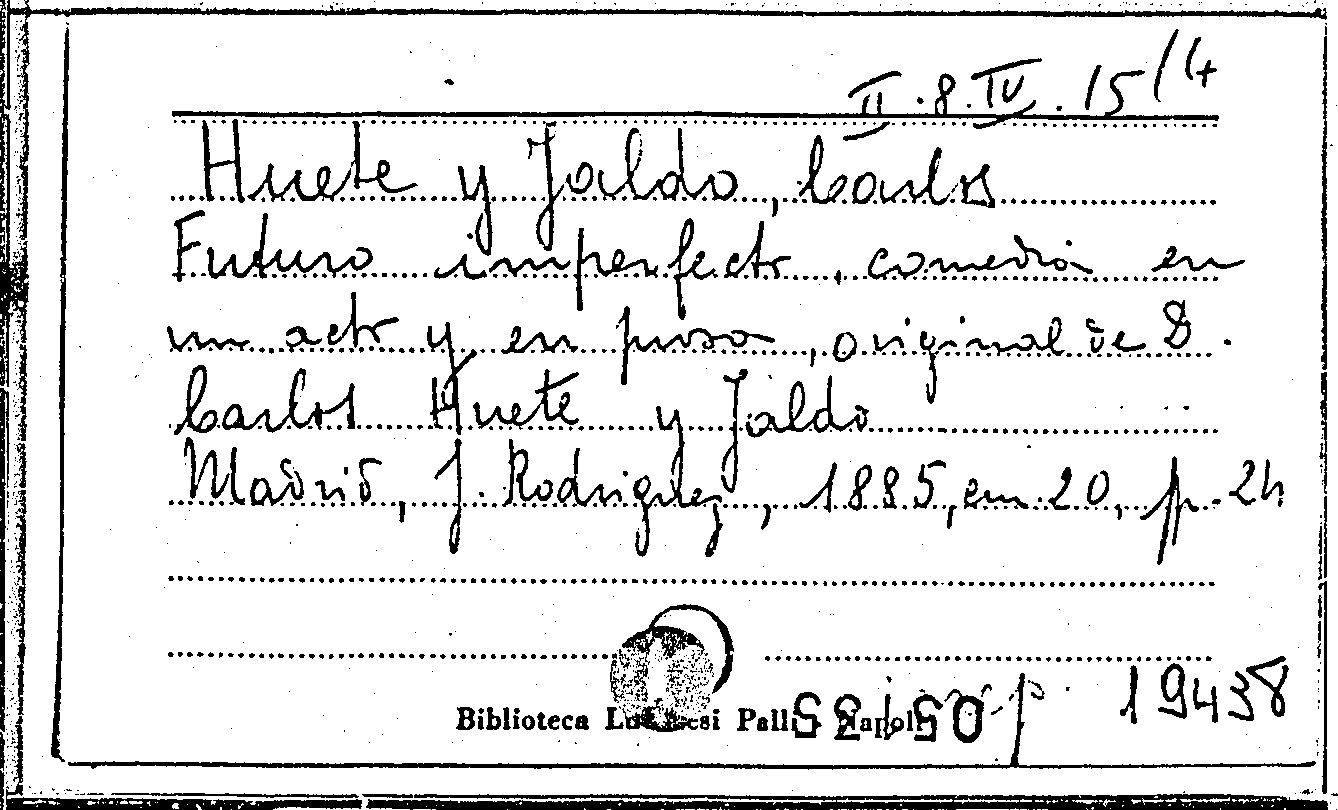 II.8.IV.15/4
Huete y Jaldo, Carlos
Futuro imperfecto, comedia en
un acto y en prosa, original de D.
Carlos Huete y Jaldo
Madrid, J. Rodriguez, 1885, em 20, p. 24
19438
Biblioteca Lucchesi Palli Napoli